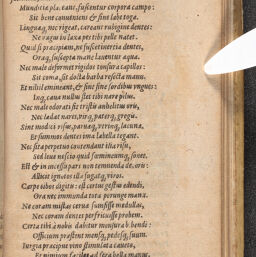 Munditiæ placeant, fuscentur corpora campo:
Sit bene conueniens & sine labe toga.
Linguaq, nec rigeat, careant rubigine dentes:
Ne vagus in laxa pes tibi pelle natet.
dentes,
Oraq, suscepta mane lauentur aqua.
Nec male deformet rigidos tonsura capillos:
Sit coma, sit docta barba resecta manu.
Et nihil emineant, & sint sine sordibus vngues:
Inq, caua nullus stet tibi nare pilus.
Nec male odorati sit tristis anhelitus oris,
Nec lædat nares, virq, paterq, gregis.
Sint modici rictus, paruæq, vtrinq, lacunæ,
Et summos dentes ima labella tegant.
Nec sua perpetuo contendant ilia risu,
Sed leue nescio quid fœmineumq, sonet.
Est & in incessu pars non temnenda decoris:
Allicit ignotos illa fugatq, viros.
Carpe cibos digitis: est certus gestus edendi,
Ora nec immunda tota perunge manu.
Nec coram mistas ceruæ sumsisse medullas,
Nec coram dentes perfricuisse probem.
Certa tibi à nobis dabitur mensura bibendi:
Officium præstent mensq, pedesq, suum.
Iurgia præcipue vino stimulata caueto,